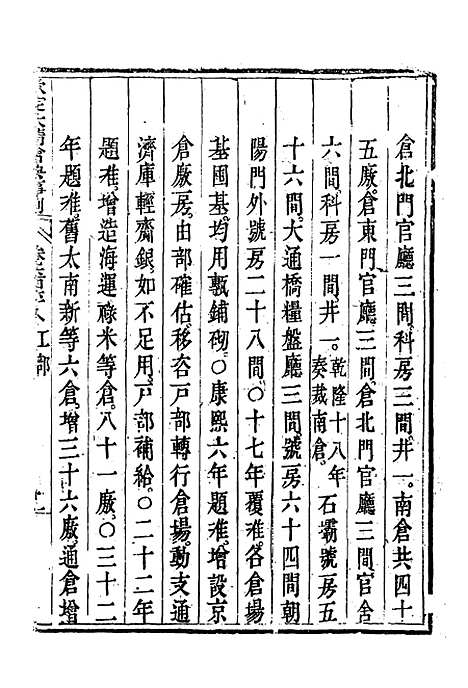 倉北門官廳三間。科房三間。井一。南倉共四十
五廒。倉東門官廳三間。倉北門官廳三間。官舍
六間。科房一間。井一。乾隆十八年奏裁南倉。石霸號房五
十六間。大通橋糧盤廳三間。號房六十四間。朝
陽門外號房二十八間。○十七年覆准。各倉場
基囤基。均用甎鋪砌。○康熙六年題准。增設京
倉廒房。由部確估。移咨戶部轉行倉場。動支通
濟庫輕齎銀。如不足用。戶部補給。○二十二年
題准。增造海運祿米等倉。八十一廒。○三十二
年題准。舊太南新等六倉。增三十六廒。通倉增
大清會典事例
工部